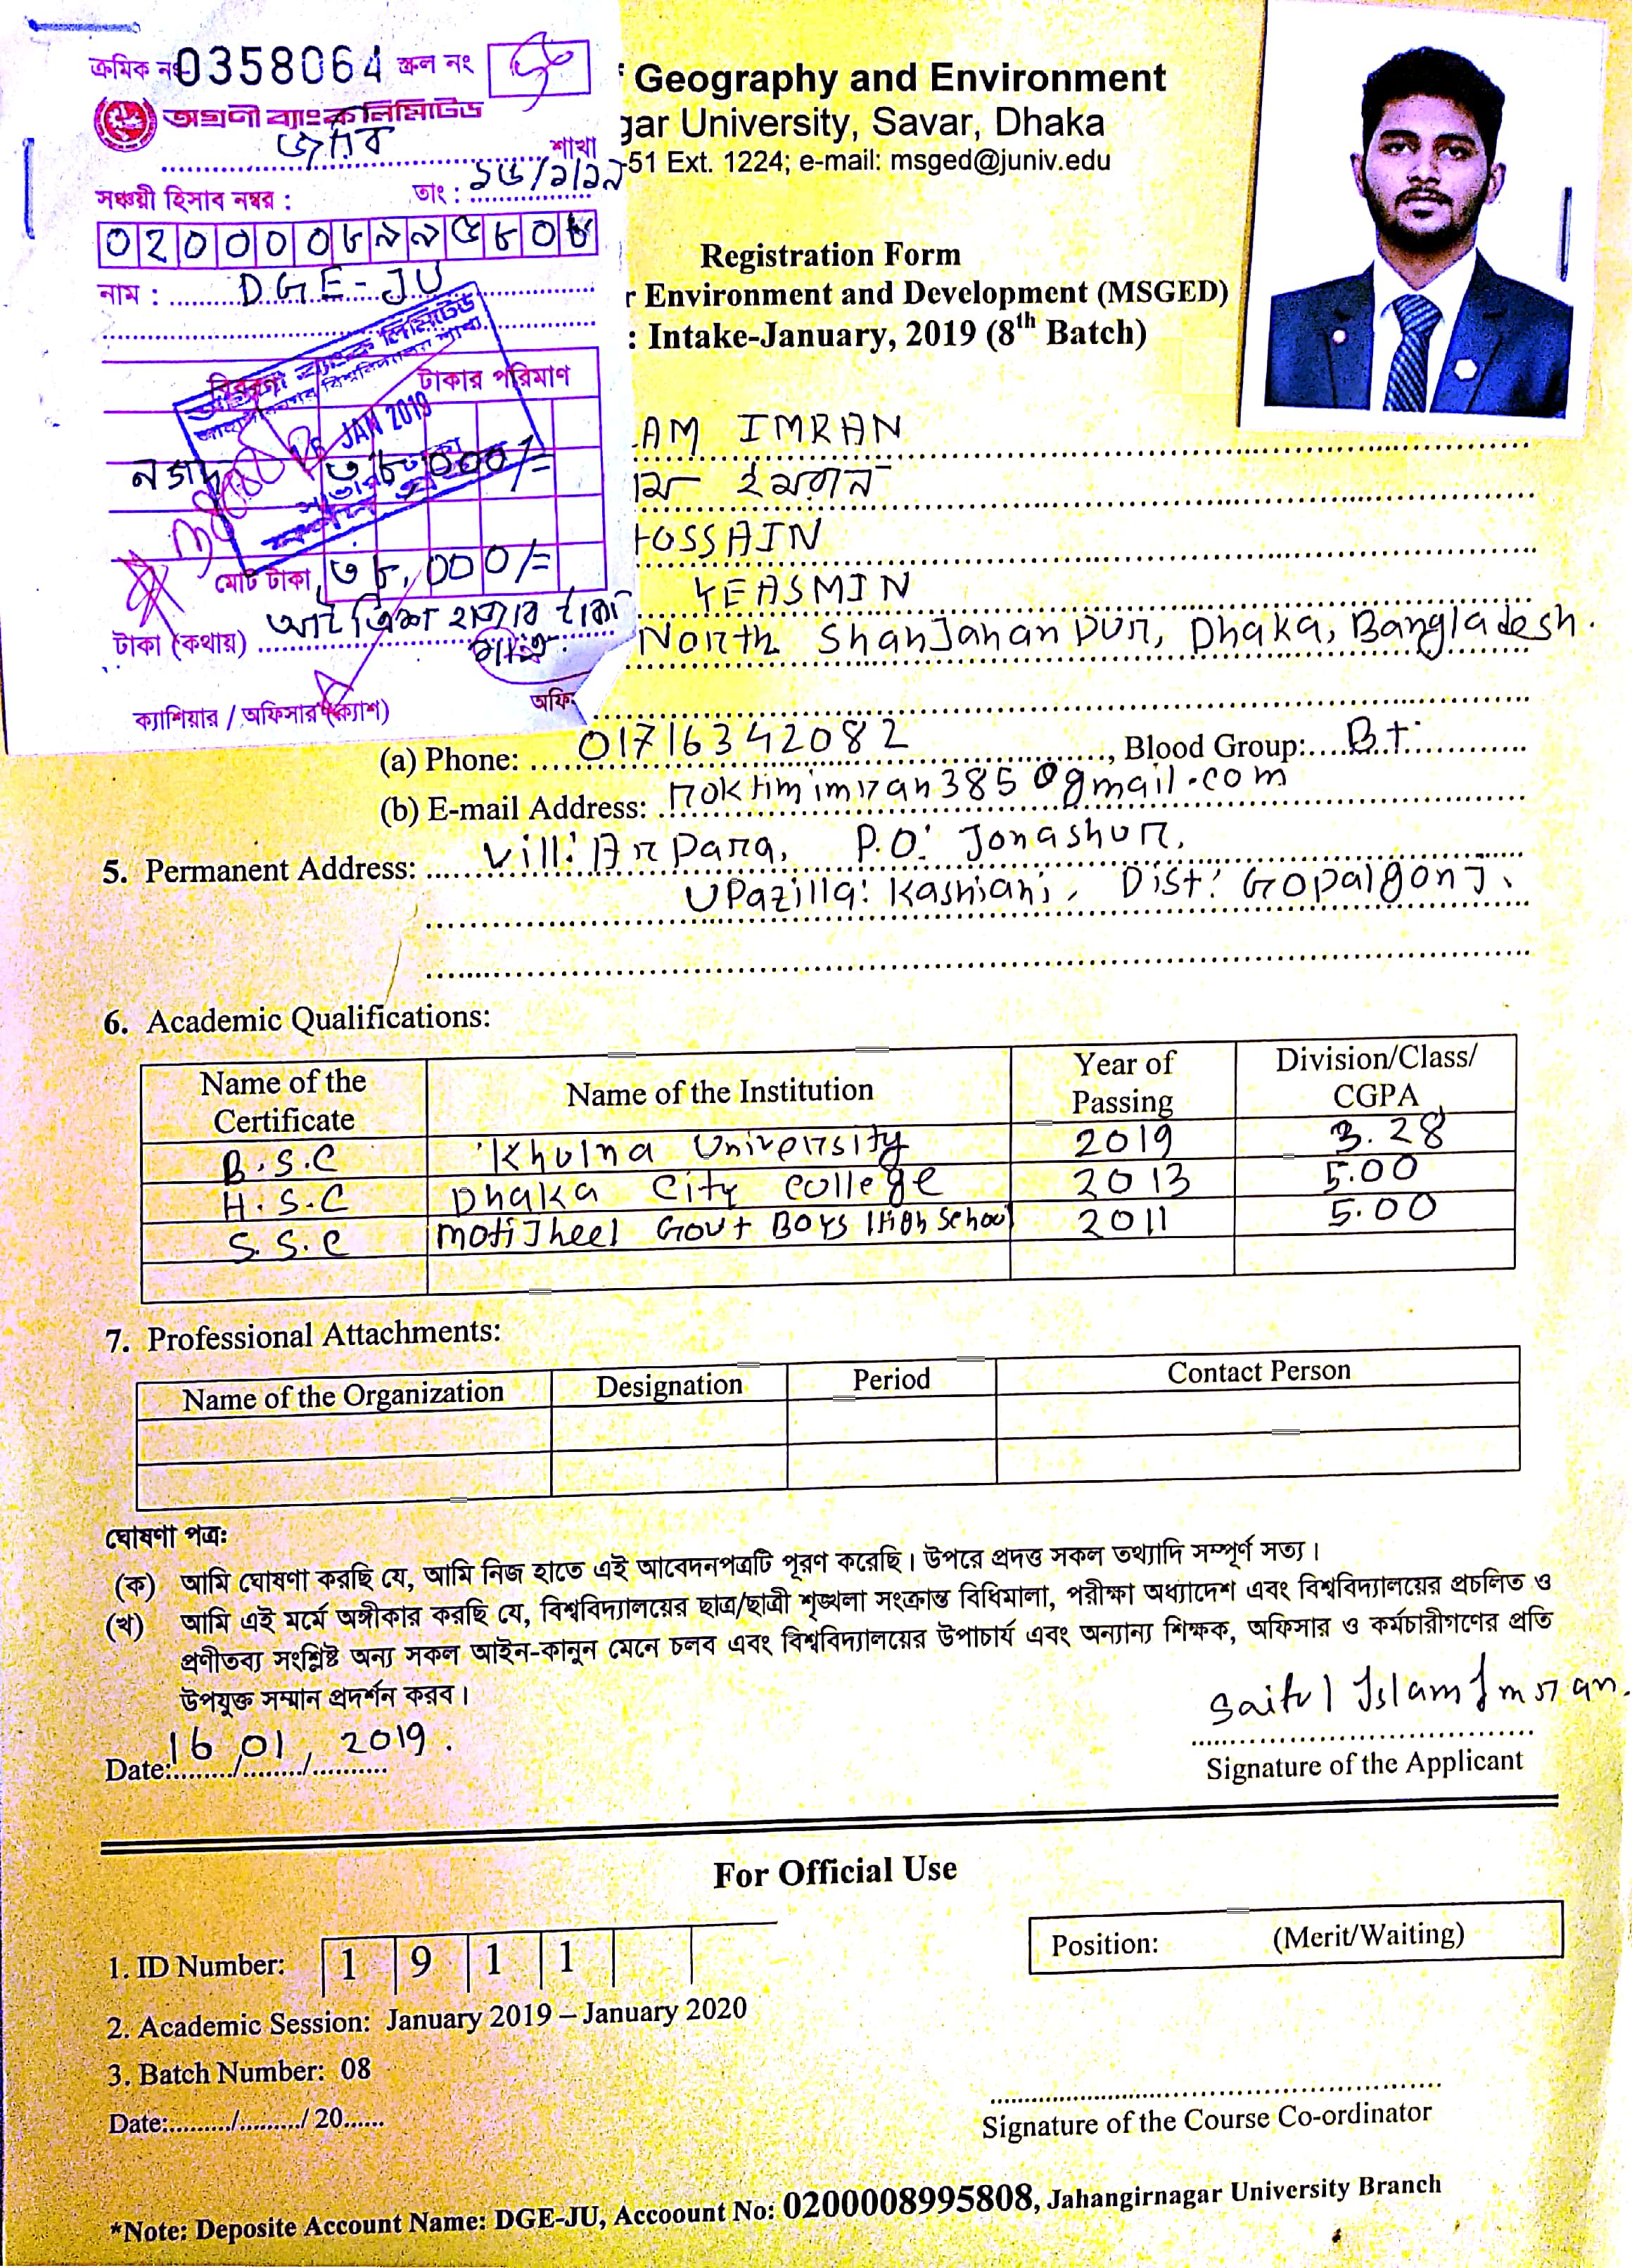 ক্রমিক নং 0358064 স্ক্রল নং
অগ্রণী ব্যাংক লিমিটেড
জাবি শাখা
সঞ্চয়ী হিসাব নম্বর : তাং : ১৬/১/১৯
০২০০০০৮৯৯৫৮০৮
নাম : DGE-JU
বিবরণ টাকার পরিমাণ
অগ্রণী ব্যাংক লিমিটেড
জাহাঙ্গীরনগর বিশ্ববিদ্যালয় শাখা
16 JAN 2019
নগদ ৩৮,০০০/=
মোট টাকা ৩৮,০০০/=
টাকা (কথায়) আটত্রিশ হাজার টাকা
মাত্র.
ক্যাশিয়ার / অফিসার (ক্যাশ) অফি
Geography and Environment
gar University, Savar, Dhaka
51 Ext. 1224; e-mail: msged@juniv.edu
Registration Form
r Environment and Development (MSGED)
: Intake-January, 2019 (8th Batch)
AM IMRAN
াম ইমরান
HOSSAIN
YEASMIN
North ShahJahanpur, Dhaka, Bangladesh.
(a) Phone: 01716342082, Blood Group: B+
(b) E-mail Address: roktimimran385@gmail.com
5. Permanent Address: Vill: Arpara, P.O: Jonashur,
Upazilla: Kashiani, Dist: Gopalgonj.
6. Academic Qualifications:
Name of the Certificate Name of the Institution Year of Passing Division/Class/ CGPA
B.S.C Khulna University 2019 3.28
H.S.C Dhaka City College 2013 5.00
S.S.C MotiJheel Govt Boys High School 2011 5.00
7. Professional Attachments:
Name of the Organization Designation Period Contact Person
ঘোষণা পত্র:
(ক) আমি ঘোষণা করছি যে, আমি নিজ হাতে এই আবেদনপত্রটি পূরণ করেছি। উপরে প্রদত্ত সকল তথ্যাদি সম্পূর্ণ সত্য।
(খ) আমি এই মর্মে অঙ্গীকার করছি যে, বিশ্ববিদ্যালয়ের ছাত্র/ছাত্রী শৃঙ্খলা সংক্রান্ত বিধিমালা, পরীক্ষা অধ্যাদেশ এবং বিশ্ববিদ্যালয়ের প্রচলিত ও
প্রণীতব্য সংশ্লিষ্ট অন্য সকল আইন-কানুন মেনে চলব এবং বিশ্ববিদ্যালয়ের উপাচার্য এবং অন্যান্য শিক্ষক, অফিসার ও কর্মচারীগণের প্রতি
উপযুক্ত সম্মান প্রদর্শন করব।
Saiful Islam Imran.
Date: 16/01/2019.
Signature of the Applicant
For Official Use
1. ID Number: 1 9 1 1
Position: (Merit/Waiting)
2. Academic Session: January 2019 – January 2020
3. Batch Number: 08
Date:........./........./ 20......
Signature of the Course Co-ordinator
*Note: Deposite Account Name: DGE-JU, Accoount No: 0200008995808, Jahangirnagar University Branch